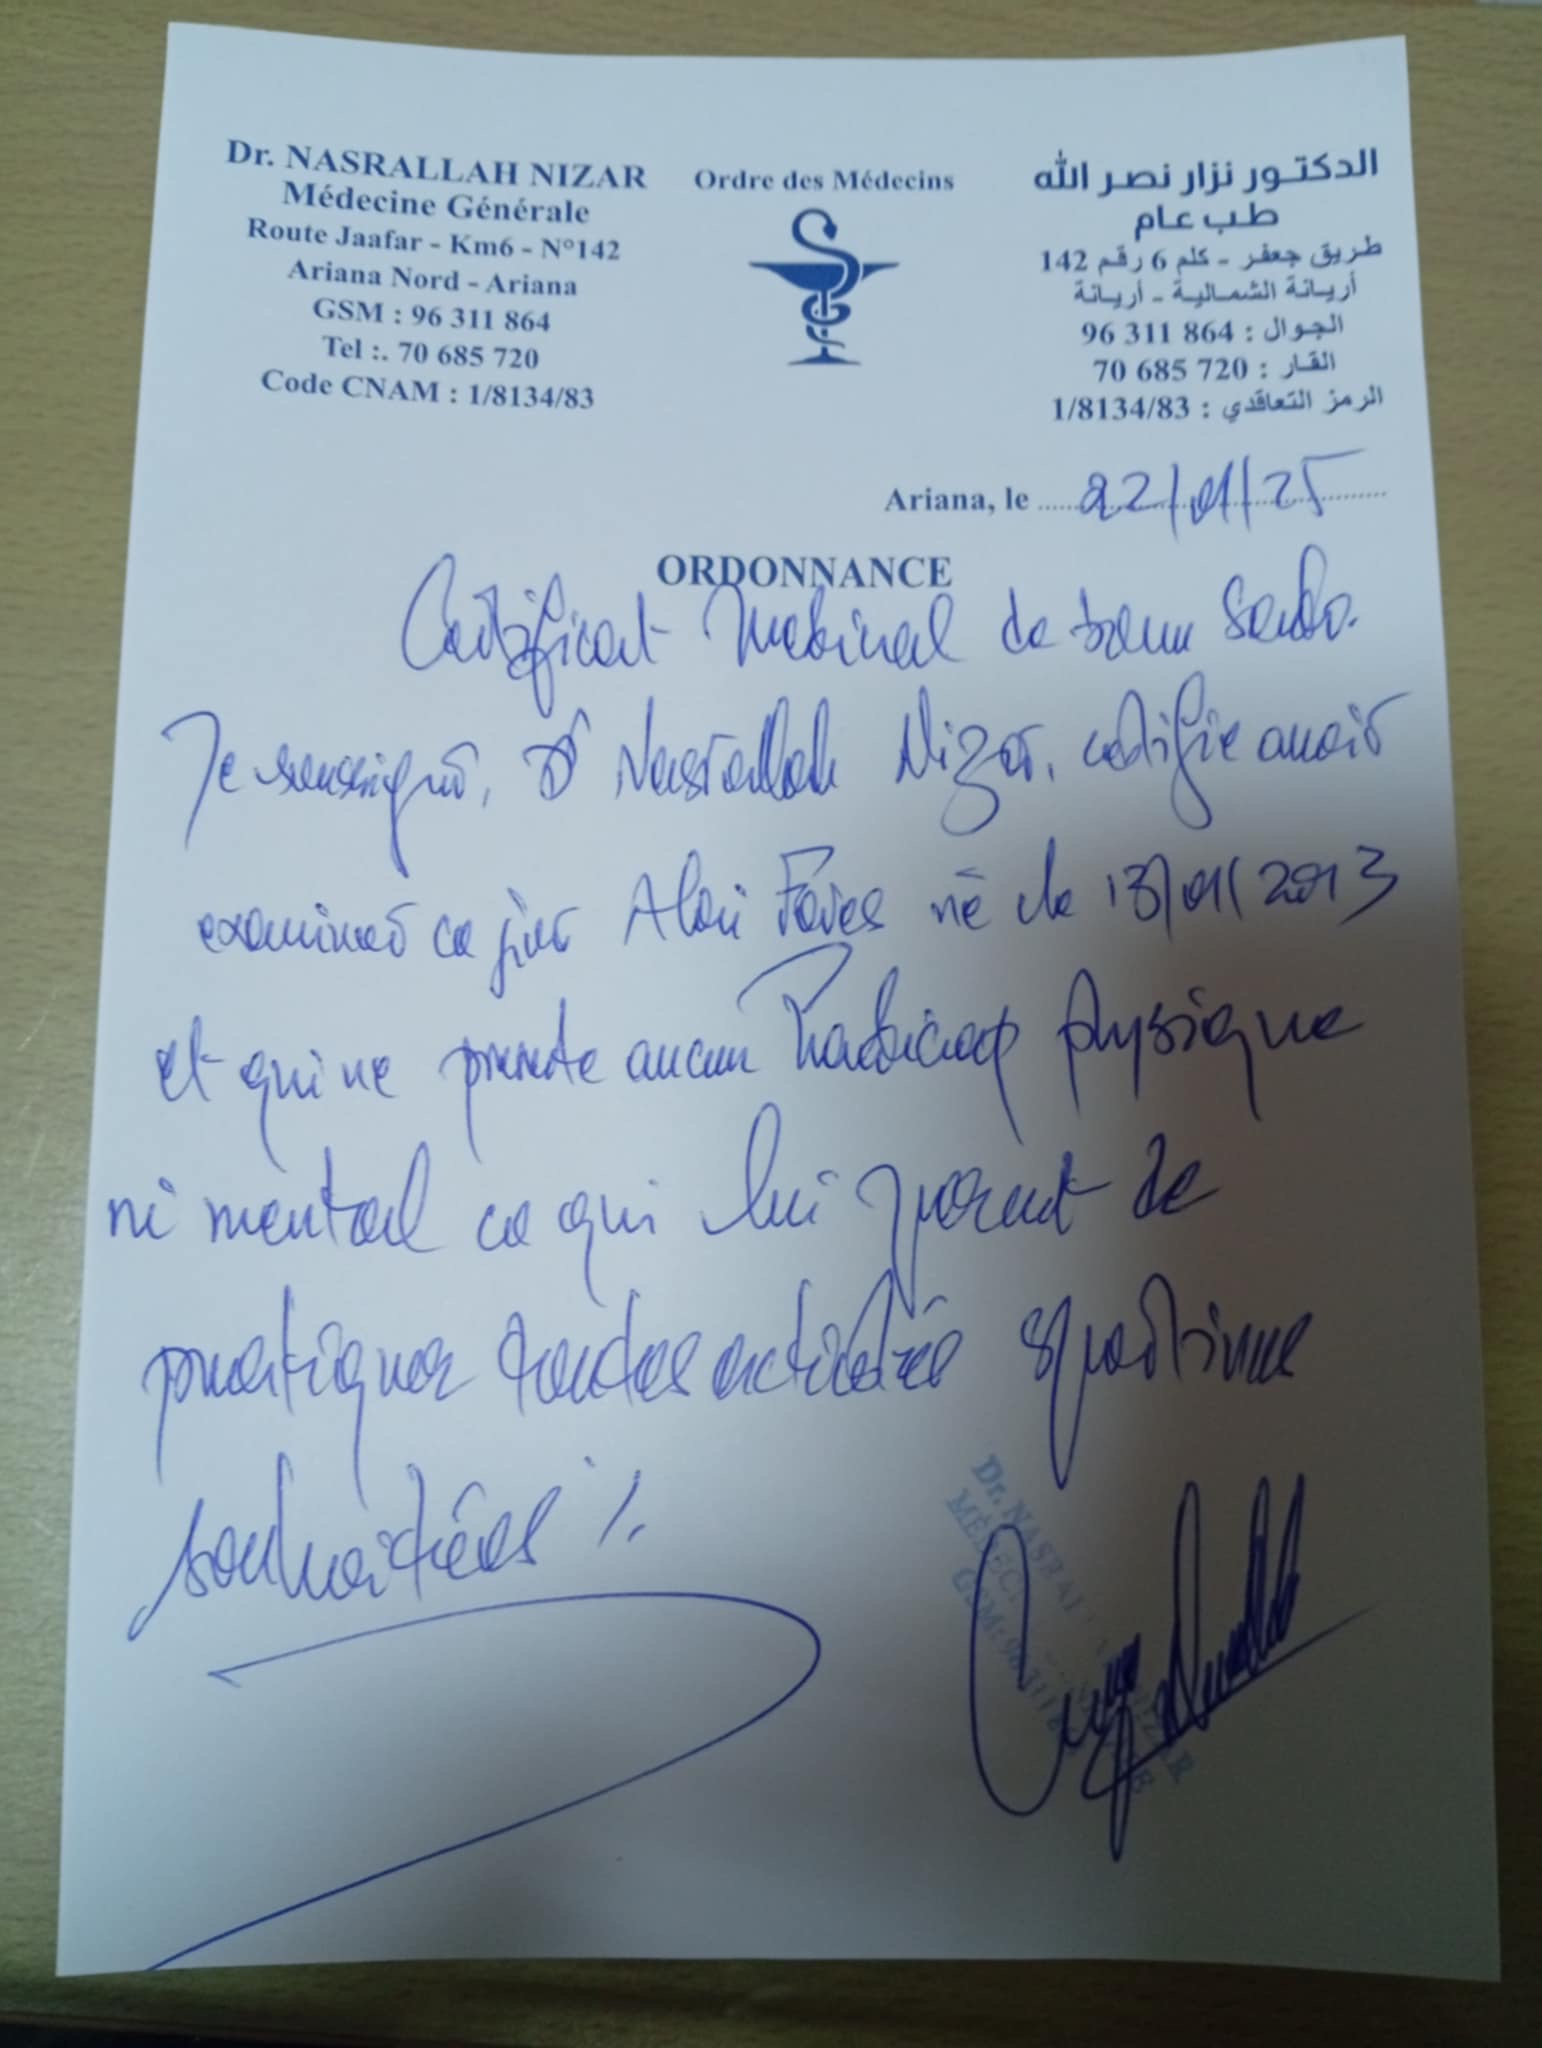 Dr. NASRALLAH NIZAR
Médecine Générale
Route Jaafar - Km6 - N°142
Ariana Nord - Ariana
GSM : 96 311 864
Tel :. 70 685 720
Code CNAM : 1/8134/83
Ordre des Médecins
الدكتور نزار نصر الله
طب عام
طريق جعفر - كلم 6 رقم 142
أريانة الشمالية - أريانة
الجوال : 96 311 864
القار : 70 685 720
الرمز التعاقدي : 1/8134/83
Ariana, le 22/01/25
ORDONNANCE
Certificat Medical de bonne Santé.
Je soussigné, Dr Nasrallah Nizar, certifie avoir
examiner ce jour Fares né le 13/01/2013
et qui ne presente aucun Handicap physique
ni mental ce qui lui permet de
pratiquer toutes activités sportives
souhaitées ./.
Dr. NASRALLAH NIZAR
GSM: 96 311 8